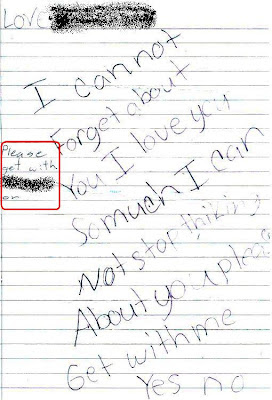 LOVE
I cannot
Forget about
You I love you
So much I can
Not stop thiking
About you please
Get with me
Yes no
Please
get with
or